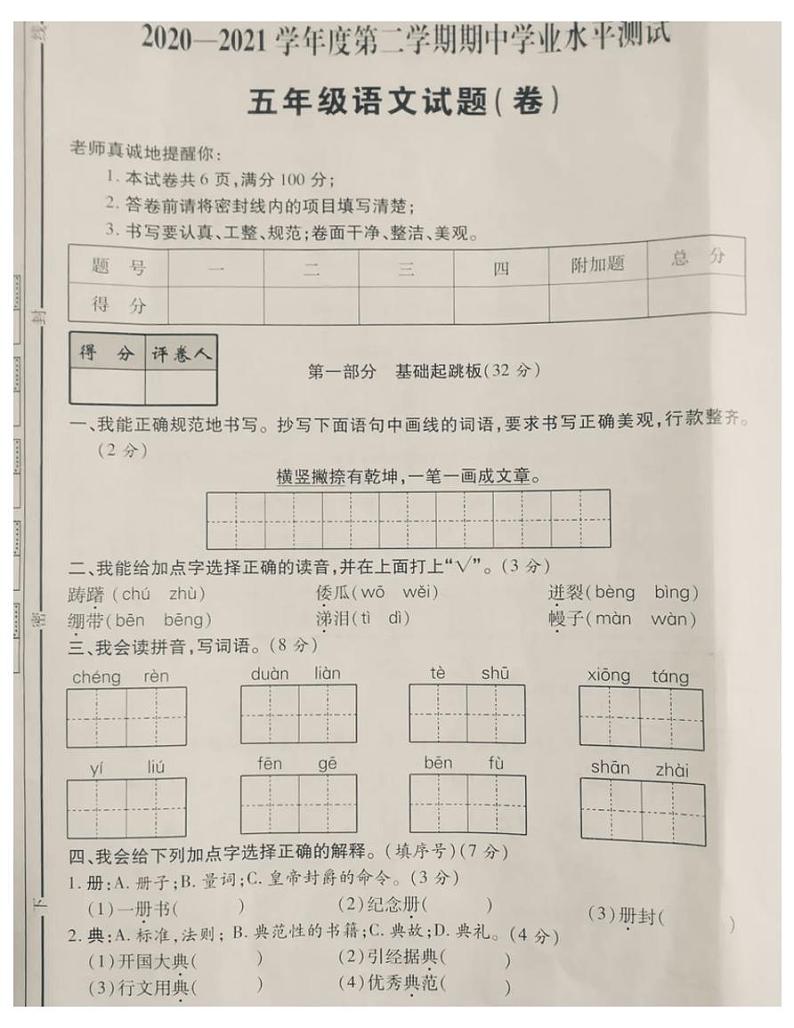 2020—2021学年度第二学期期中学业水平测试
五年级语文试题(卷)
老师真诚地提醒你:
1. 本试卷共6页,满分100分;
2. 答卷前请将密封线内的项目填写清楚;
3. 书写要认真、工整、规范;卷面干净、整洁、美观。
题 号 一 二 三 四 附加题 总 分
得 分
得 分 评卷人
第一部分 基础起跳板(32分)
一、我能正确规范地书写。抄写下面语句中画线的词语,要求书写正确美观,行款整齐。
(2分)
横竖撇捺有乾坤,一笔一画成文章。
二、我能给加点字选择正确的读音,并在上面打上“√”。(3分)
踌躇(chú zhù) 倭瓜(wō wěi) 迸裂(bèng bìng)
绷带(bēn bēng) 涕泪(tì dì) 幔子(màn wàn)
三、我会读拼音,写词语。(8分)
chéng rèn duàn liàn tè shū xiōng táng
yí liú fēn gē bēn fù shān zhài
四、我会给下列加点字选择正确的解释。(填序号)(7分)
1. 册:A. 册子;B. 量词;C. 皇帝封爵的命令。(3分)
(1)一册书( ) (2)纪念册( ) (3)册封( )
2. 典:A. 标准,法则; B. 典范性的书籍;C. 典故;D. 典礼。(4分)
(1)开国大典( ) (2)引经据典( )
(3)行文用典( ) (4)优秀典范( )
线
封
密
下